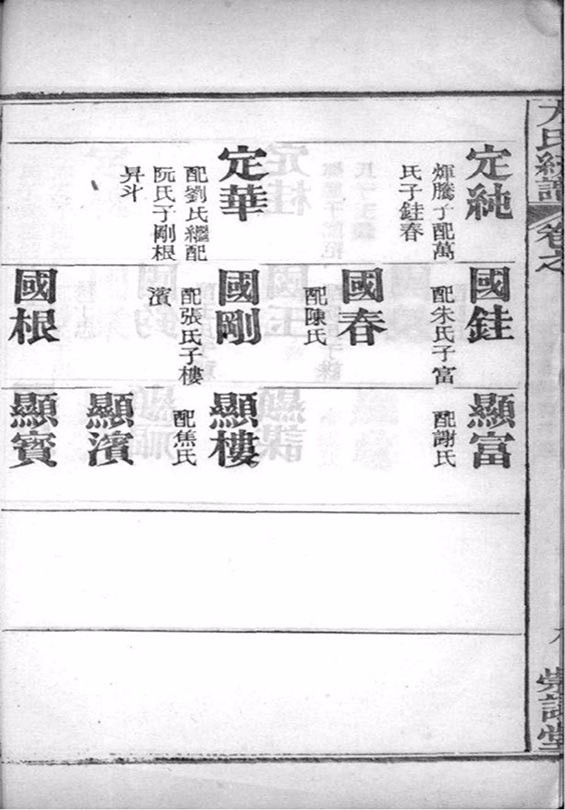 卷之
定純
煇騰子配萬
氏子銈春
定華
配劉氏繼配
阮氏子剛根
昇斗
國銈
配朱氏子富
國春
配陳氏
國剛
配張氏子樓
濱
國根
顯富
配謝氏
顯樓
配焦氏
顯濱
顯賓